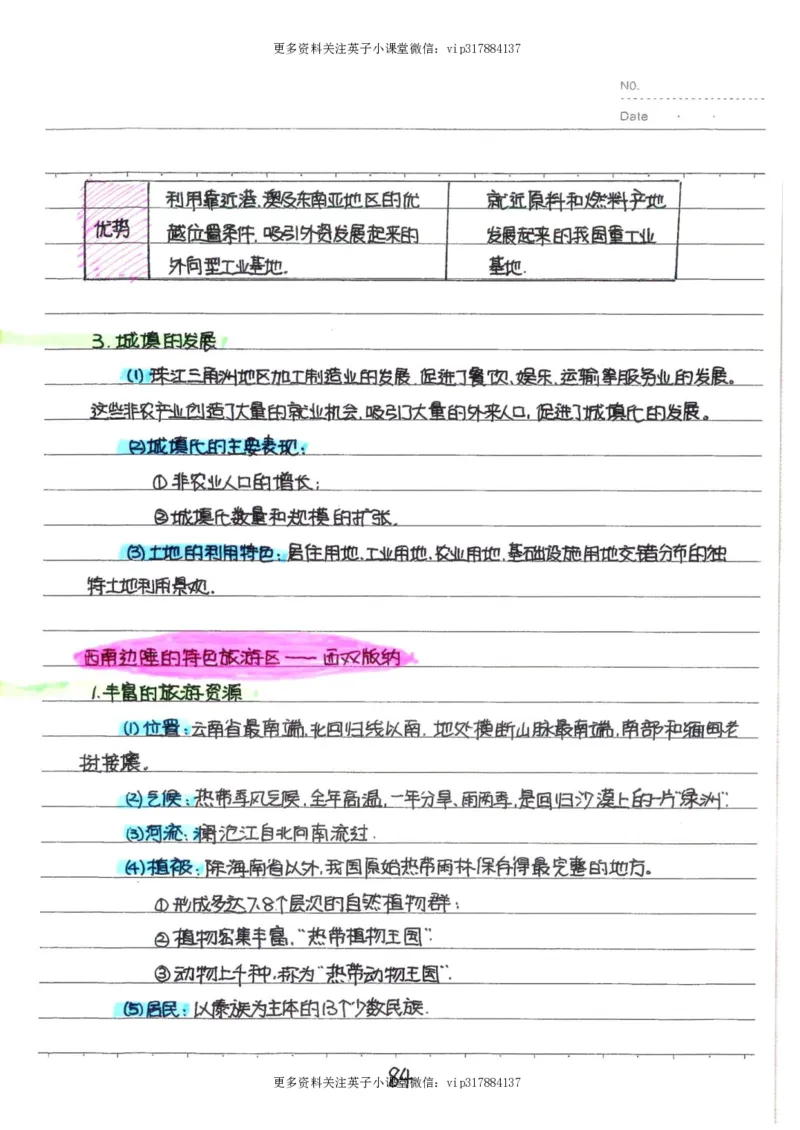 更多资料关注英子小课堂微信：vip317884137
NO.
Date
优势
利用靠近港、澳及东南亚地区的优
越位置条件，吸引外资发展起来的
外向型工业基地。
就近原料和燃料产地
发展起来的我国重工业
基地.
3. 城填的发展
(1) 珠江三角洲地区加工制造业的发展，促进了餐饮、娱乐、运输等服务业的发展。
这些非农产业创造了大量的就业机会，吸引了大量的外来人口，促进了城填化的发展。
(2) 城填化的主要表现：
① 非农业人口的增长；
② 城填化数量和规模的扩张.
(3) 土地的利用特色：居住用地、工业用地、农业用地、基础设施用地交错分布的独
特土地利用景观.
西南边陲的特色旅游区——西双版纳
1.丰富的旅游资源
(1) 位置：云南省最南端，北回归线以南，地处横断山脉最南端，南部和缅甸老
挝接壤。
(2) 气候：热带季风气候，全年高温，一年分旱、雨两季，是回归沙漠上的一片“绿洲”.
(3) 河流：澜沧江自北向南流过.
(4) 植被：除海南省以外，我国原始热带雨林保存得最完整的地方。
① 形成多达7.8个层次的自然植物群；
② 植物密集丰富，“热带植物王国”.
③ 动物上千种，称为“热带动物王国”.
(5) 居民：以傣族为主体的13个少数民族.
84
更多资料关注英子小课堂微信：vip317884137